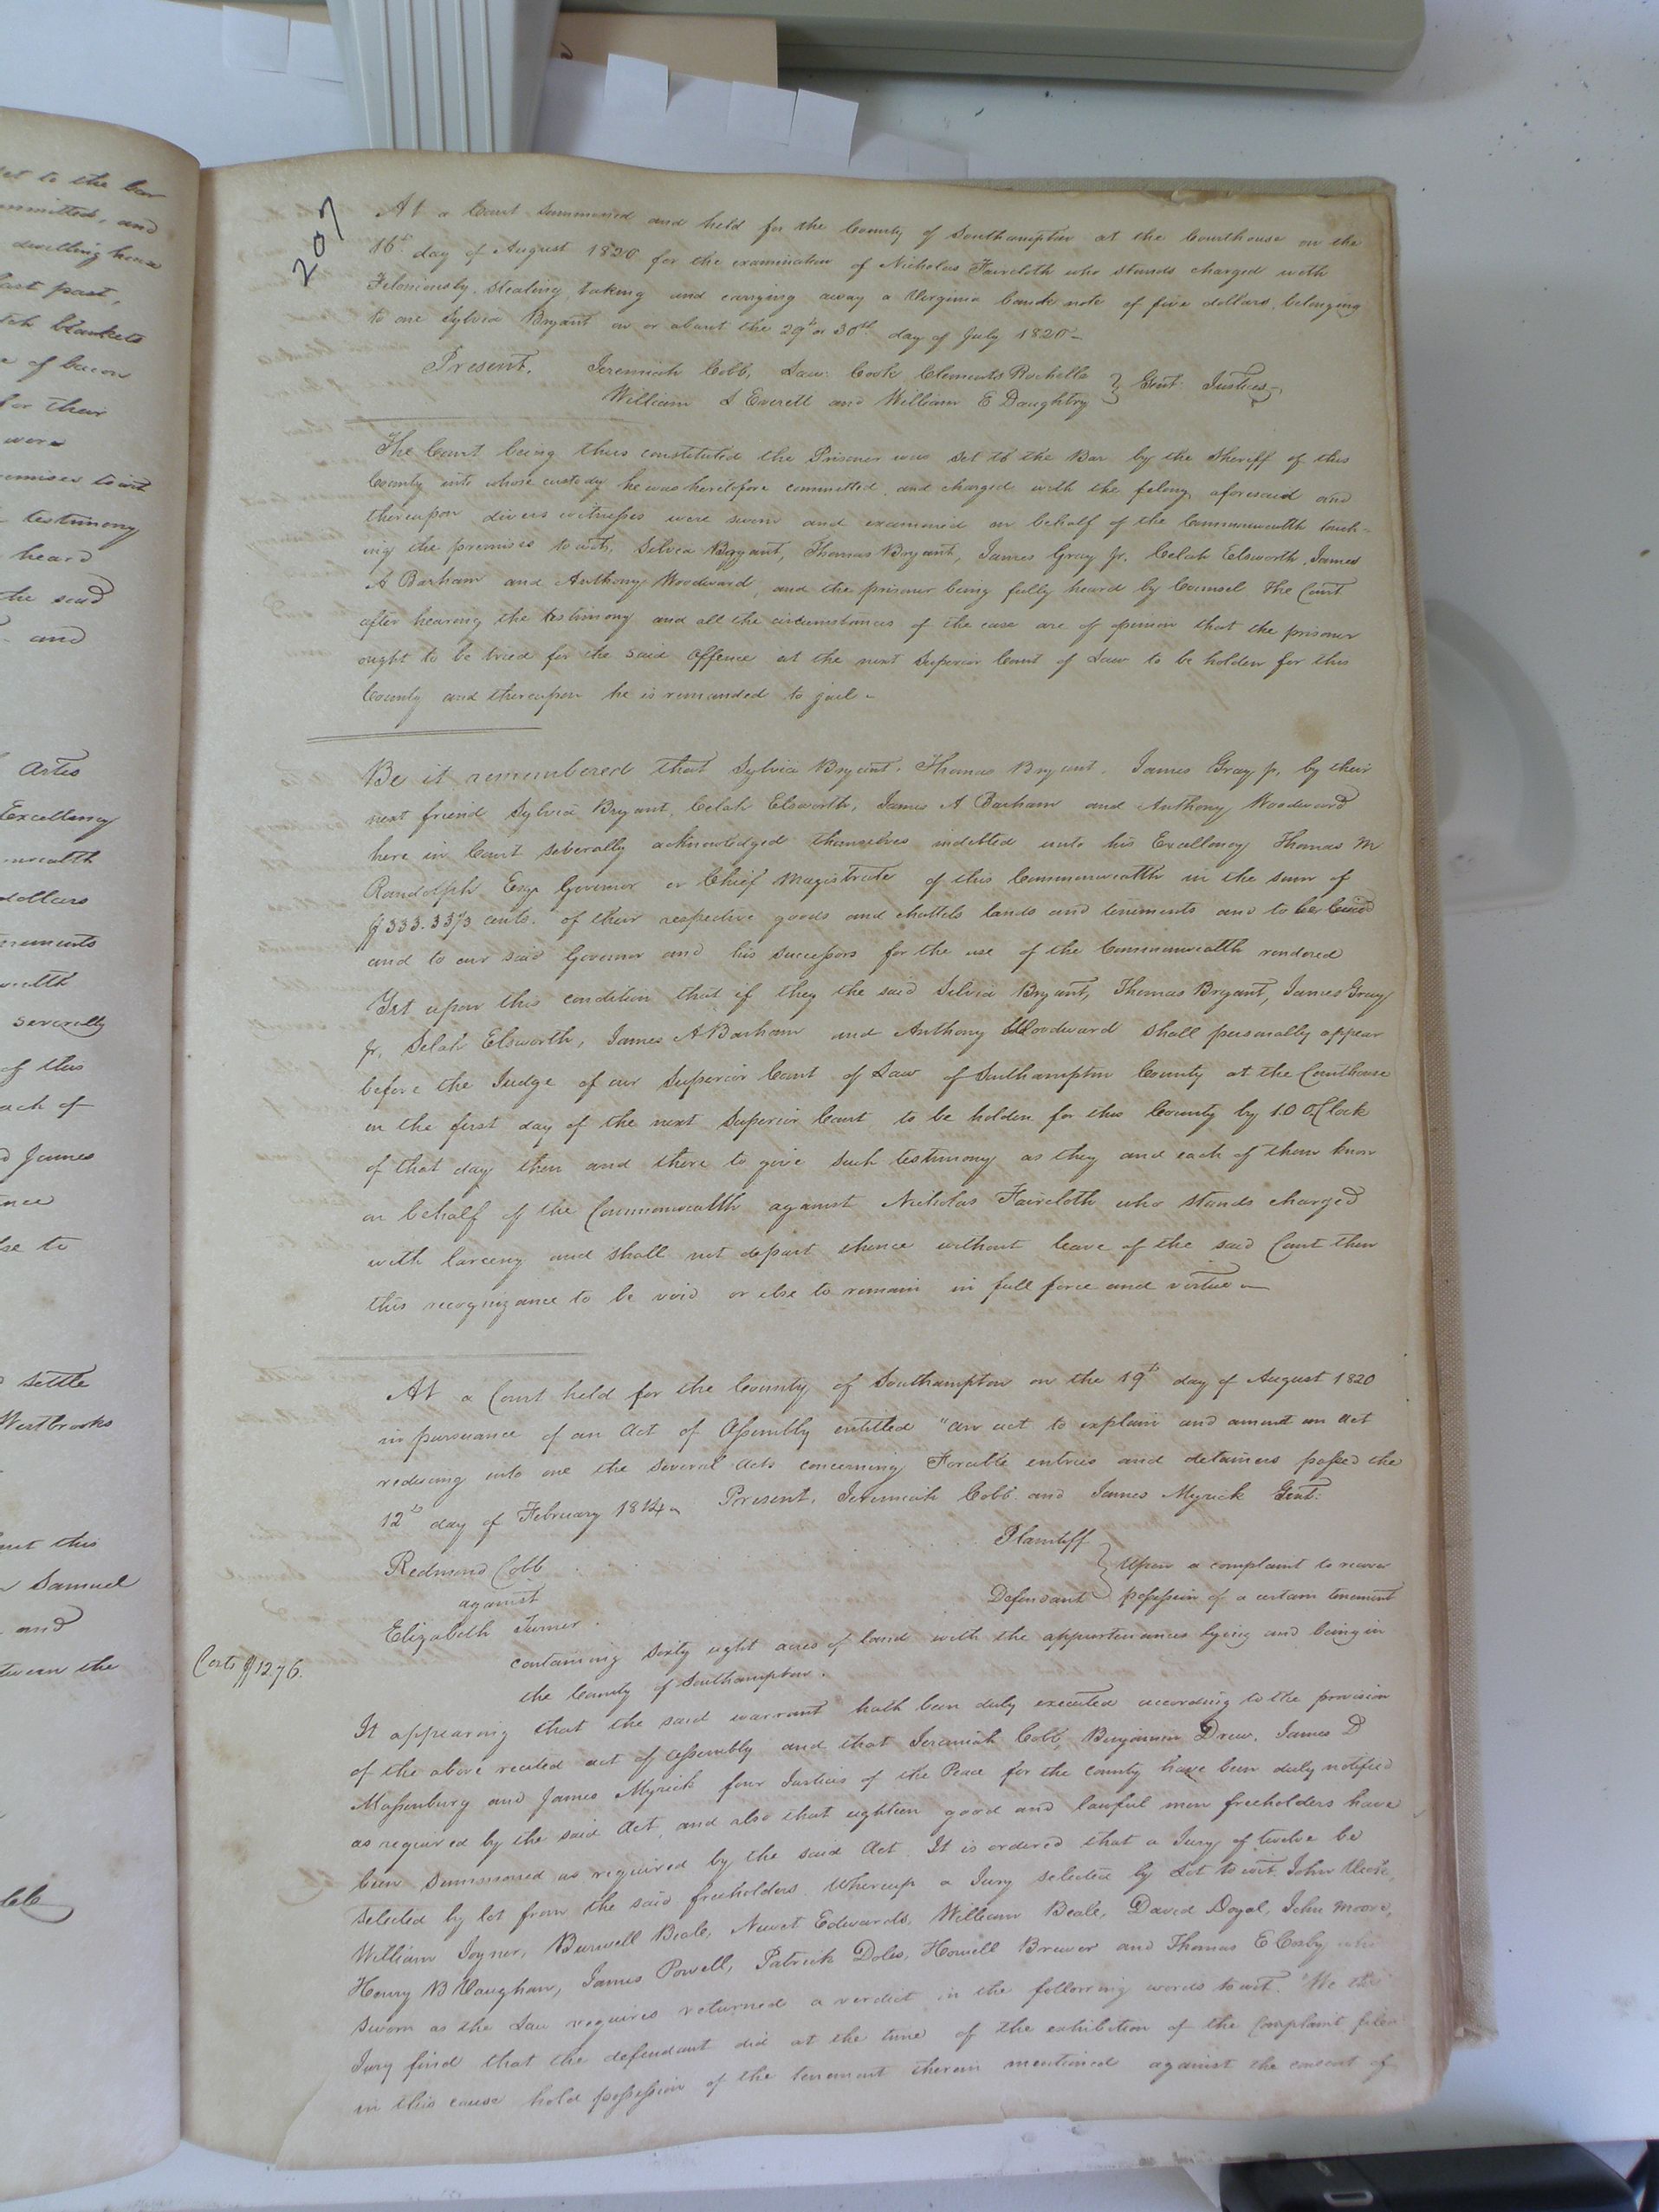 set to the bar
committed, and
dwelling house
last past,
blankets
of bacon
for their
were
premises to wit
testimony
heard
the said
and
Artes
Excellency
dollars
severally
of this
each of
James
settle
Westbrooks
this
Samuel
and
between the
207
At a Court Summoned and held for the County of Southampton at the Courthouse on the
16th day of August 1820 for the examination of Nicholas Faircloth who stands charged with
Feloniously Stealing taking and carrying away a Virginia bank note of five dollars belonging
to one Sylvia Bryant on or about the 29th or 30th day of July 1820
Present, Jeremiah Cobb, Law: Cook Clements Rochelle
William S Everett and William E Daughtry } Gent: Justices
The Court being thus constituted the Prisoner was Set to the Bar by the Sheriff of this
County into whose custody he was heretofore committed and charged with the felony aforesaid and
thereupon divers witnesses were sworn and examined on behalf of the Commonwealth touch-
ing the premises to wit, Silvia Bryant, Thomas Bryant, James Gray jr. Celah Elsworth, James
A Barham and Anthony Woodward, and the prisoner being fully heard by Counsel The Court
after hearing the testimony and all the circumstances of the case are of opinion that the prisoner
ought to be tried for the said offence at the next Superior Court of Law to be holden for this
County and thereupon he is remanded to jail
Be it remembered that Sylvia Bryant, Thomas Bryant, James Gray jr, by their
next friend Sylvia Bryant, Celah Elsworth, James A. Barham and Anthony Woodward
here in Court Severally acknowledged themselves indebted unto his Excellency Thomas M
Randolph Esqr Governor or Chief Magistrate of this Commonwealth in the sum of
$333.33⅓ cents. of their respective goods and chattels lands and tenements and to be levied
and to our said Governor and his successors for the use of the Commonwealth rendered
Yet upon this condition that if they the said Silvia Bryant, Thomas Bryant, James Gray
Jr. Selah Elsworth, James A Barham and Anthony Woodward shall personally appear
before the Judge of our Superior Court of Law of Southampton County at the Courthouse
on the first day of the next Superior Court to be holden for this County by 10 OClock
of that day then and there to give Such testimony as they and each of them know
on behalf of the Commonwealth against Nicholas Faircloth who stands charged
with larceny and shall not depart thence without leave of the said Court then
this recognizance to be void or else to remain in full force and virtue
At a Court held for the County of Southampton on the 19th day of August 1820
in pursuance of an Act of Assembly entitled "an act to explain and amend an act
reducing into one the several acts concerning Forcible entries and detainers passed the
12th day of February 1814 Present, Jeremiah Cobb and James Myrick Gent:
Redmond Cobb Plaintiff
against } Upon a complaint to recover
Elizabeth Turner Defendant possession of a certain tenement
containing Sixty eight acres of land with the appurtenances lying and being in
Costs $12.76.
the County of Southampton.
It appearing that the said warrant hath been duly executed according to the provision
of the above recited act of Assembly and that Jeremiah Cobb, Benjamin Drew, James D
Massenburg and James Myrick four Justices of the Peace for the county have been duly notified
as required by the said Act, and also that eighteen good and lawful men freeholders have
been Summoned as required by the said Act. It is ordered that a Jury of twelve be
Selected by lot from the said freeholders. Whereup a Jury selected by Lot to wit John
William Joyner, Burwell Beale, Newet Edwards, William Beale, David Doyal, John Moore,
Henry B Vaughan, James Powell, Patrick Doles, Howell Brewer and Thomas E Cosby who
sworn as the Law requires returned a verdict in the following words to wit. "We the
Jury find that the defendant did at the time of the exhibition of the Complaint filed
in this cause hold possession of the tenement therein mentioned against the consent of